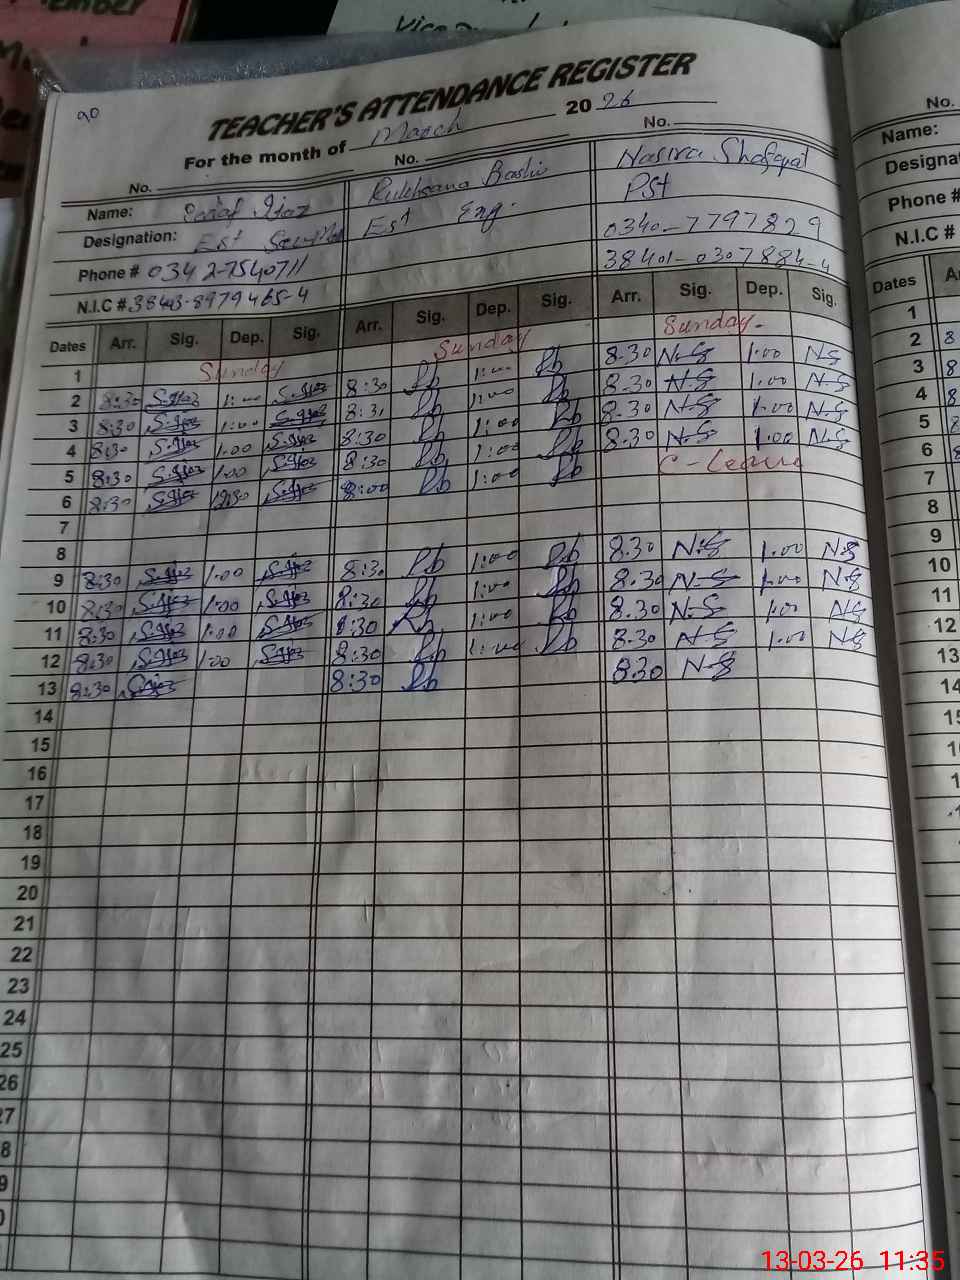 90
TEACHER'S ATTENDANCE REGISTER
For the month of March 2026
No. No. No.
Name: Ijaz Rukhsana Nasira Shafqat
Designation: Est Est Eng. PSt
Phone # 0342-7540711 0340-7797829
N.I.C # 38403-8979465-4 38401-0307884-4
Dates Arr. Sig. Dep. Sig. Arr. Sig. Dep. Sig. Arr. Sig. Dep. Sig.
1 Sunday Sunday Sunday.
2 8:30 S.Ijaz 1:00 S.Ijaz 8:30 Rb 1:00 Rb 8.30 N-S 1.00 N-S
3 8:30 S.Ijaz 1:00 S.Ijaz 8:30 Rb 1:00 Rb 8.30 N-S 1.00 N-S
4 8:30 S.Ijaz 1.00 S.Ijaz 8:30 Rb 1:00 Rb 8.30 N-S 1.00 N-S
5 8:30 S.Ijaz 1.00 S.Ijaz 8:30 Rb 1:00 Rb 8.30 N-S 1.00 N-S
6 8:30 S.Ijaz 12:30 S.Ijaz 8:00 Rb 1:00 Rb C-Leave
7
8
9 8:30 S.Ijaz 1.00 S.Ijaz 8:30 Rb 1:00 Rb 8.30 N-S 1.00 N-S
10 8:30 S.Ijaz 1:00 S.Ijaz 8:30 Rb 1:00 Rb 8.30 N-S 1.00 N-S
11 8:30 S.Ijaz 1:00 S.Ijaz 8:30 Rb 1:00 Rb 8.30 N-S 1.00 N-S
12 8:30 S.Ijaz 1.00 S.Ijaz 8:30 Rb 1:00 Rb 8.30 N-S 1.00 N-S
13 8:30 S.Ijaz 8:30 Rb 8.30 N-S
14
15
16
17
18
19
20
21
22
23
24
25
26
27
8
9
0
No.
Name:
Phone #
N.I.C #
Dates
1
2 8
3 8
4 8
5 8
6 8
7
8
9
10
11
12
13
14
13-03-26 11:35